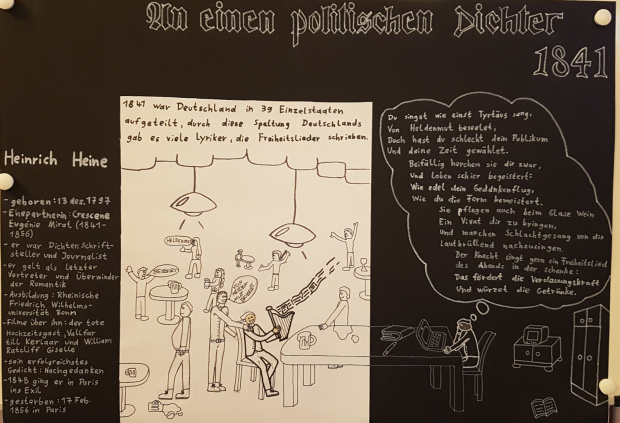 An einen politischen Dichter
1841
1841 war Deutschland in 39 Einzelstaaten
aufgeteilt, durch diese Spaltung Deutschlands
gab es viele Lyriker, die Freiheitslieder schrieben.
Heinrich Heine
- geboren: 13 dez. 1797
- Ehepartnerin: Crescene
Eugénie Mirat (1841-
1856)
- er war Dichter, Schrift-
steller und Journalist
- er galt als letzter
Vertreter und Überwinder
der Romantik
- Ausbildung: Rheinische
Friedrich Wilhelms-
universität Bonn
- Filme über ihn: der tote
Hochzeitsgast, Wallfar
till Kevlaar und William
Ratcliff Giselle
- sein erfolgreichstes
Gedicht: Nachtgedanken
- 1848 ging er in Paris
ins Exil
- gestorben: 17 Feb.
1856 in Paris
Du singst wie einst Tyrtäus sang,
Von Heldenmut beseelet,
Doch hast du schlecht dein Publikum
Und deine Zeit gewählet.
Beifällig horchen sie dir zwar,
Und loben schier begeistert:
Wie edel dein Gedankenflug,
Wie du die Form bemeistert.
Sie pflegen auch beim Glase Wein
Ein Vivat dir zu bringen,
Und manchen Schlachtgesang von dir
lautbrüllend nachzusingen.
Der Knecht singt gern ein Freiheitslied
des Abends in der Schenke:
Das fördert die Verdauungskraft
Und würzet die Getränke.